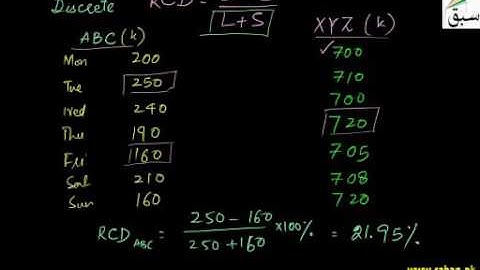 Discrete RCD =
L+S
ABC (k) XYZ (k)
Mon 200 ✓700
Tue 250 710
Wed 240 700
Thu 190 720
Fri 160 705
Sat 210 708
Sun 160 720
RCD ABC = 250 - 160 / 250 + 160 ×100% = 21.95%
سبق
www.sabaq.pk